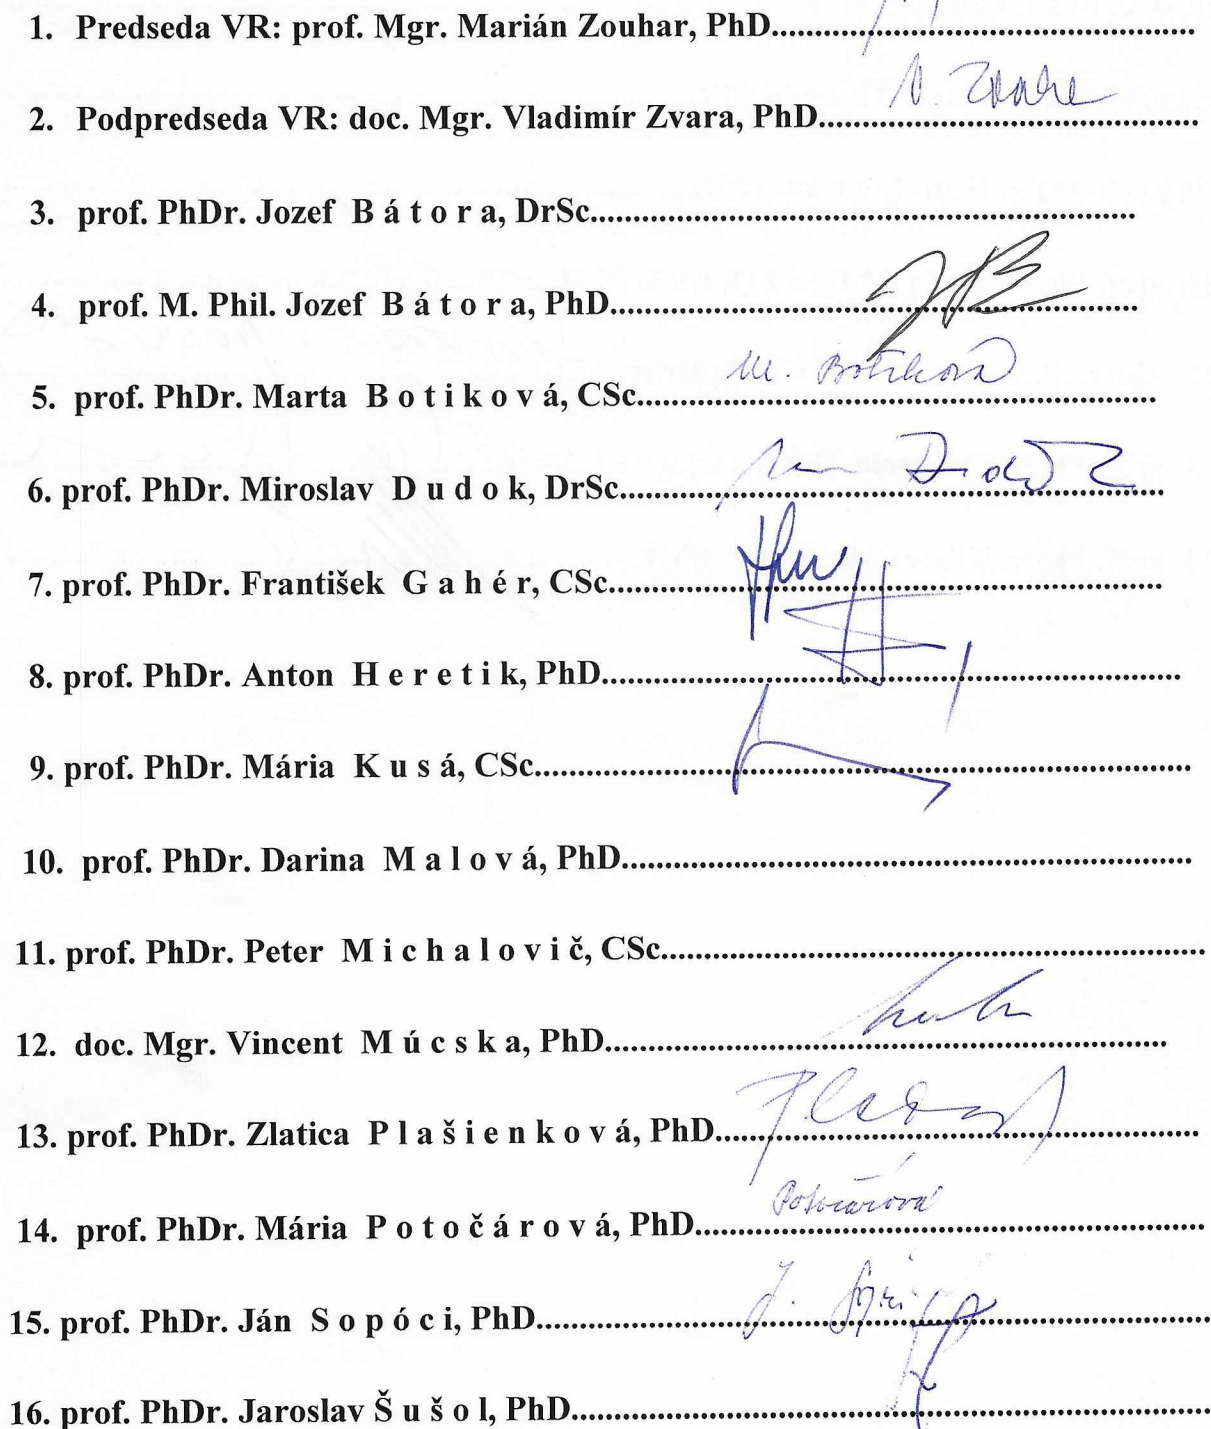 1. Predseda VR: prof. Mgr. Marián Zouhar, PhD..................................................
2. Podpredseda VR: doc. Mgr. Vladimír Zvara, PhD.............................................. V. Zvara
3. prof. PhDr. Jozef B á t o r a, DrSc..................................................................
4. prof. M. Phil. Jozef B á t o r a, PhD................................................................
5. prof. PhDr. Marta B o t i k o v á, CSc............................................................... M. Botiková
6. prof. PhDr. Miroslav D u d o k, DrSc................................................................
7. prof. PhDr. František G a h é r, CSc.................................................................
8. prof. PhDr. Anton H e r e t i k, PhD....................................................................
9. prof. PhDr. Mária K u s á, CSc............................................................................
10. prof. PhDr. Darina M a l o v á, PhD...................................................................
11. prof. PhDr. Peter M i c h a l o v i č, CSc.................................................................
12. doc. Mgr. Vincent M ú c s k a, PhD...................................................................
13. prof. PhDr. Zlatica P l a š i e n k o v á, PhD.........................................................
14. prof. PhDr. Mária P o t o č á r o v á, PhD............................................................. Potočárová
15. prof. PhDr. Ján S o p ó c i, PhD.................................................................................
16. prof. PhDr. Jaroslav Š u š o l, PhD.............................................................................